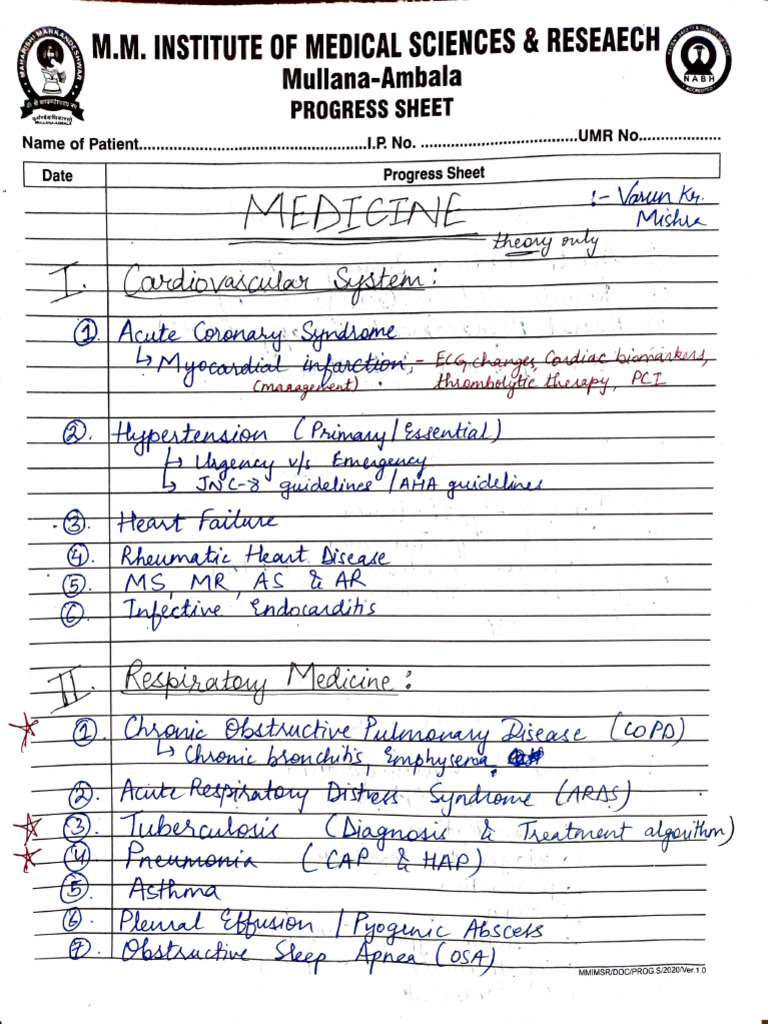 M.M. INSTITUTE OF MEDICAL SCIENCES & RESEAECH
Mullana-Ambala
PROGRESS SHEET
MAHARISHI MARKANDESHWAR
MULLANA-AMBALA
NABH
ACCREDITED
Name of Patient..................................................I.P. No. ...................................UMR No...................
Date Progress Sheet
MEDICINE
:- Varun Kr.
Mishra
theory only
I. Cardiovascular System :
① Acute Coronary Syndrome
↳ Myocardial infarction, - ECG changes, Cardiac biomarkers,
(management) thrombolytic therapy, PCI
②. Hypertension (Primary/Essential)
↳ Urgency v/s Emergency
↳ JNC-8 guidelines /AHA guidelines
③. Heart Failure
④. Rheumatic Heart Disease
⑤. MS, MR, AS & AR
⑥ Infective Endocarditis
II. Respiratory Medicine :
☆ ①. Chronic Obstructive Pulmonary Disease (COPD)
↳ Chronic bronchitis, Emphysema.
②. Acute Respiratory Distress Syndrome (ARDS)
☆ ③. Tuberculosis (Diagnosis & Treatment algorithm)
☆ ④ Pneumonia (CAP & HAP)
⑤. Asthma
⑥. Pleural Effusion / Pyogenic Abscess
⑦. Obstructive Sleep Apnea (OSA)
MMIMSR/DOC/PROG.S/2020/Ver.1.0